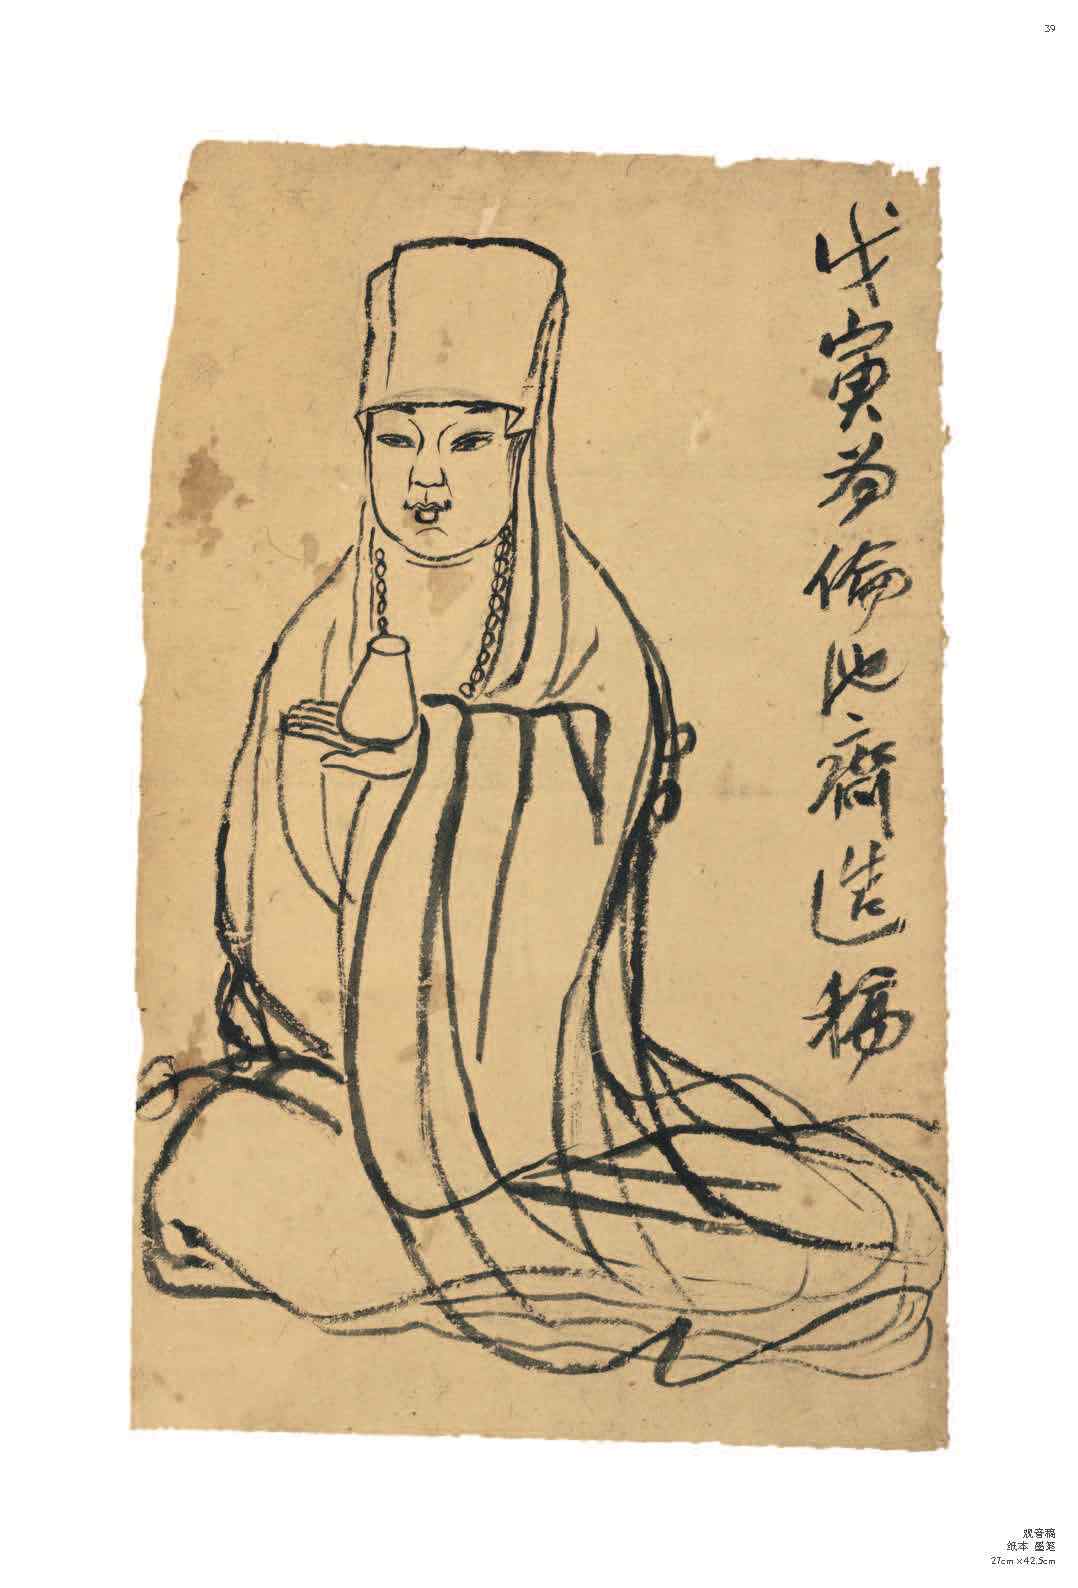 39
戊寅为倫池齋造稿
观音稿
纸本 墨笔
27cm×42.5cm